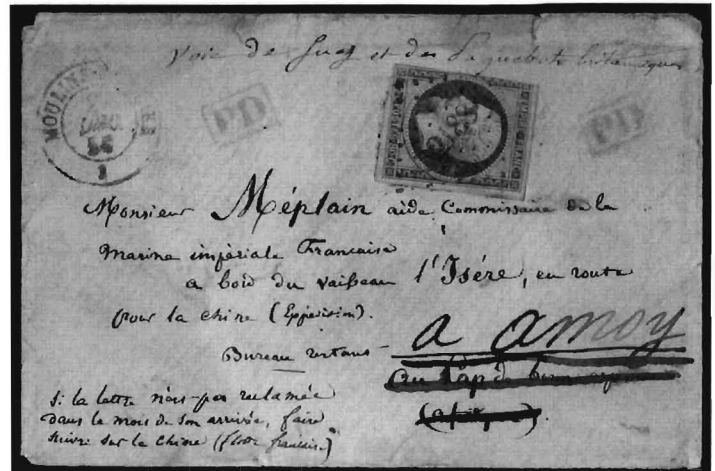 Voie de Suez et des Paquebots britanniques
MOULINS
PD
PD
Monsieur Méplain aide Commissaire de la
Marine impériale Francaise
a bord du vaisseau l'Isére, en route
pour la chine (Expédition).
Bureau restant
a amoy
au Cap de bonne
si la lettre n'est pas reclamée
dans le mois de son arrivée, faire
suivre sur la Chine (flotte francaise)